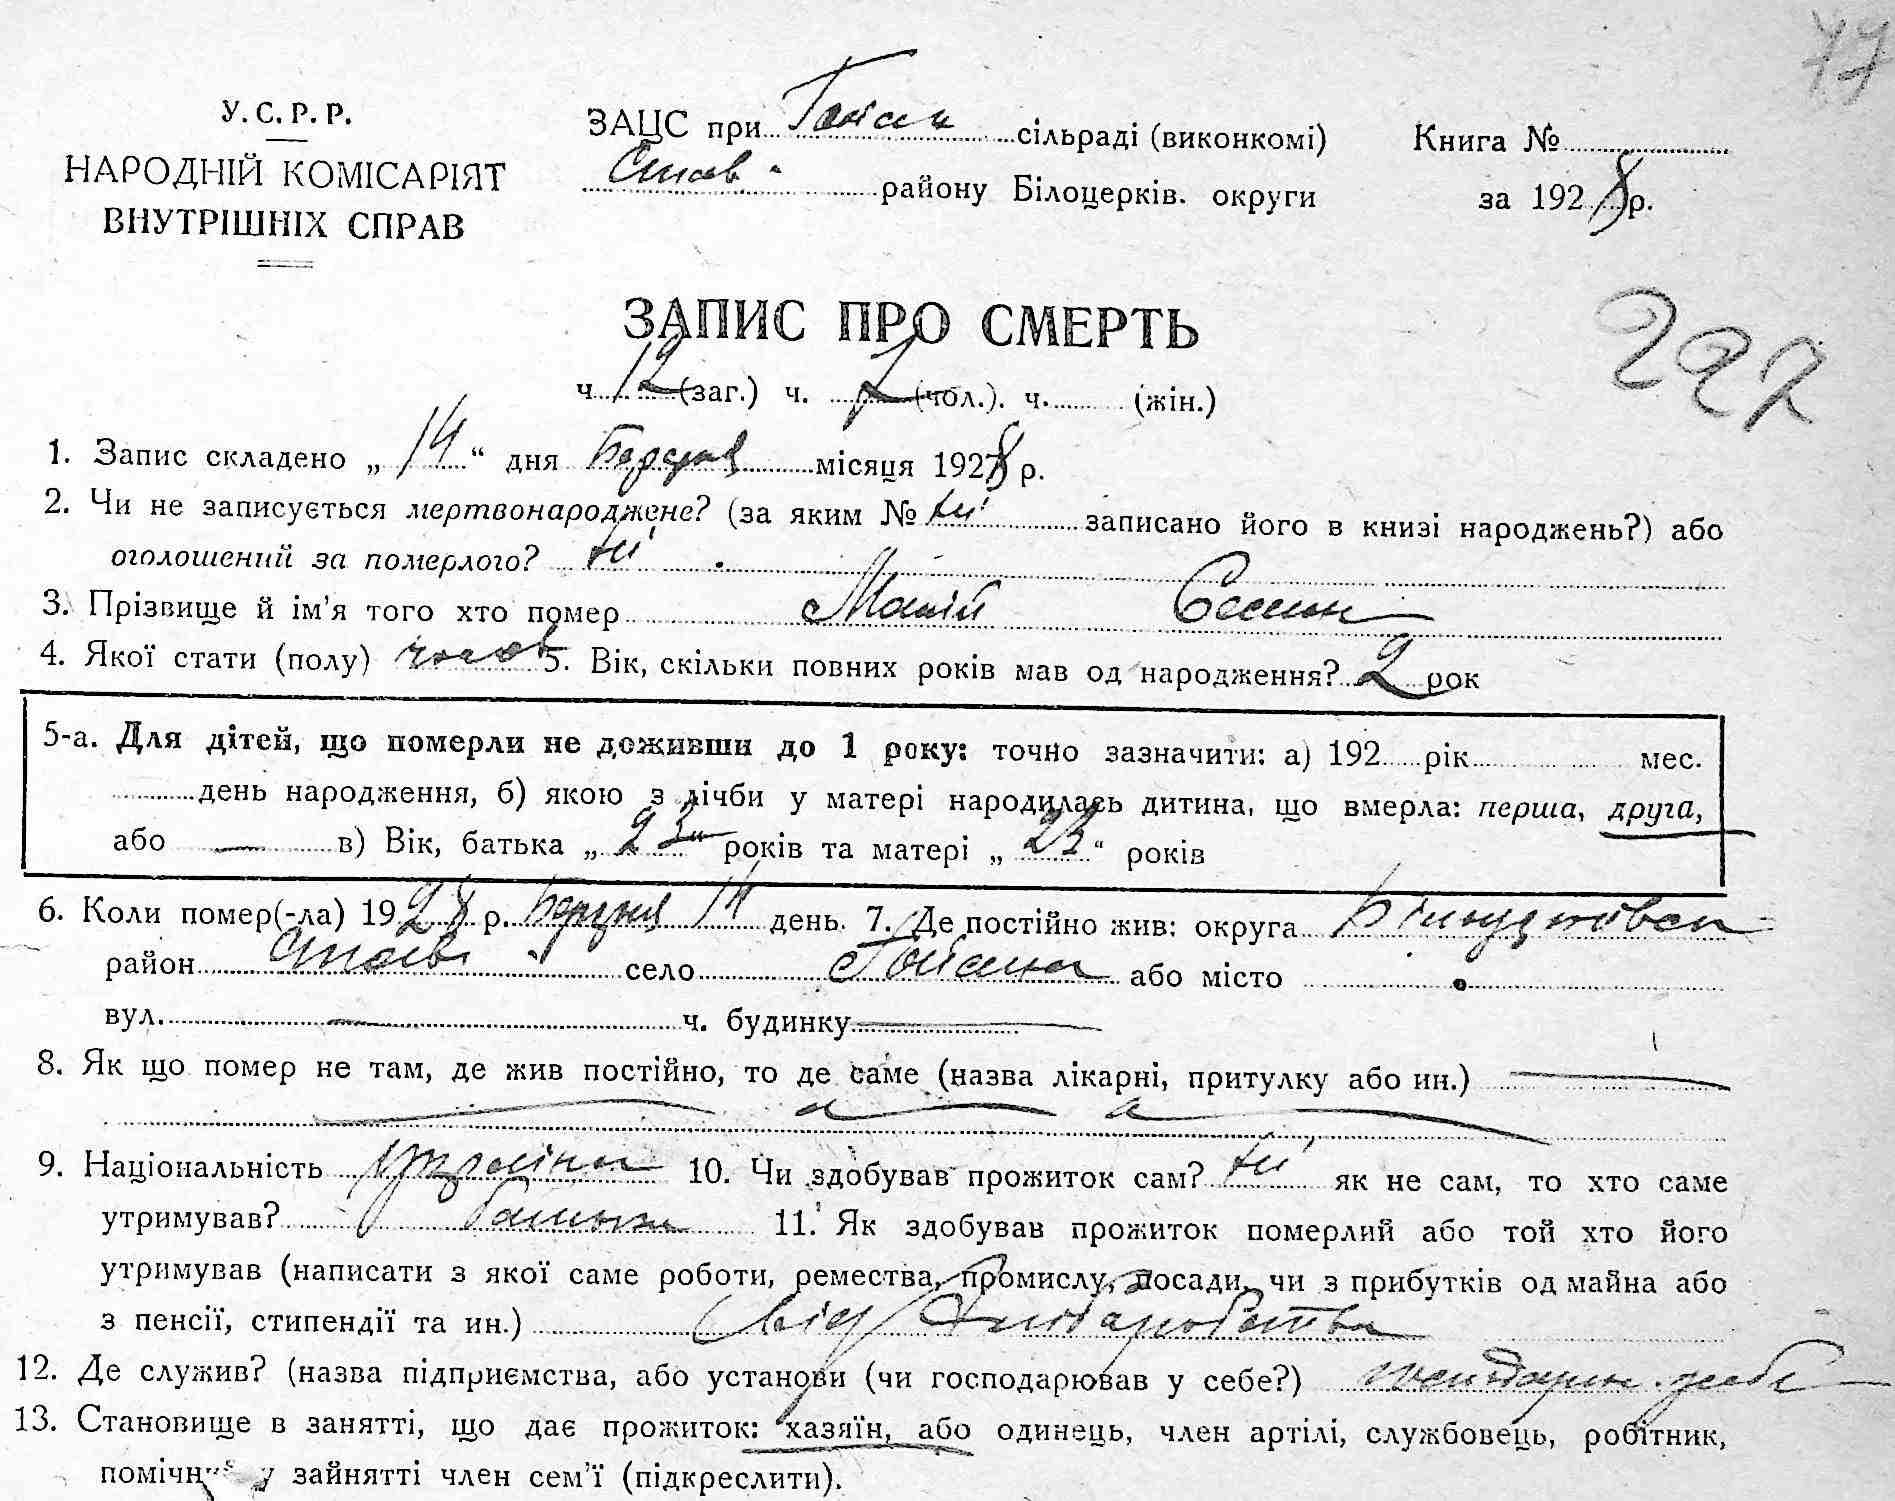 77
У.С.Р.Р.
НАРОДНІЙ КОМІСАРІЯТ
ВНУТРІШНІХ СПРАВ
ЗАЦС при сільраді (виконкомі)
Став. району Білоцерків. округи
Книга №
за 1928 р.
ЗАПИС ПРО СМЕРТЬ
227
ч. 12 (заг.) ч. 7 (чол.). ч. (жін.)
1. Запис складено „ 14 “ дня Березня місяця 1928 р.
2. Чи не записується мертвонароджене? (за яким № ні записано його в книзі народжень?) або
оголошений за померлого? ні
3. Прізвище й ім'я того хто помер
4. Якої стати (полу) 5. Вік, скільки повних років мав од народження? 2 рок
5-а. Для дітей, що померли не доживши до 1 року: точно зазначити: а) 192 рік мес.
день народження, б) якою з лічби у матері народилась дитина, що вмерла: перша, друга,
або — в) Вік, батька „ 23 “ років та матері „ 23 “ років
6. Коли помер(-ла) 1928 р. Березня 14 день. 7. Де постійно жив: округа
район Став. село або місто
вул. — ч. будинку —
8. Як що помер не там, де жив постійно, то де саме (назва лікарні, притулку або ин.) —
9. Національність 10. Чи здобував прожиток сам? ні як не сам, то хто саме
утримував? батько 11. Як здобував прожиток померлий або той хто його
утримував (написати з якої саме роботи, ремества, промислу, посади, чи з прибутків од майна або
з пенсії, стипендії та ин.) від хліборобства
12. Де служив? (назва підприємства, або установи (чи господарював у себе?)
13. Становище в занятті, що дає прожиток: хазяїн, або одинець, член артілі, службовець, робітник,
помічн у зайнятті член сем'ї (підкреслити).